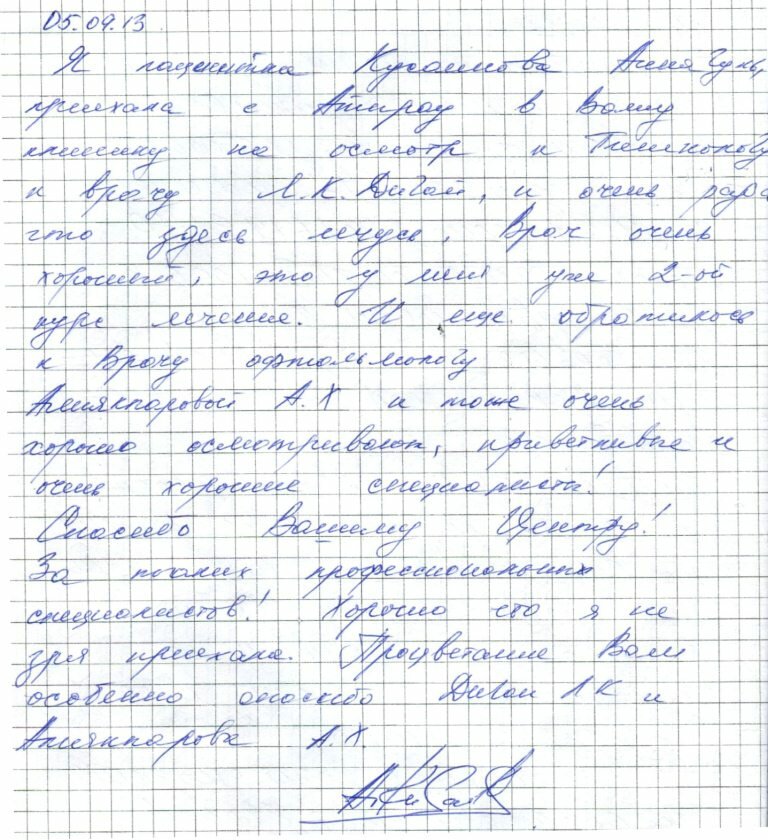 05.09.13
Я пациентка Кусаинова
приехала с Атырау в Вашу
клинику на осмотр к
к врачу Л.К. Дигай, и очень рада
что здесь лечусь. Врач очень
хороший, это у меня уже 2-ой
курс лечение. И еще обратилась
к Врачу офтольмологу
А.Х и тоже очень
хорошо осмотривают, приветливые и
очень хорошие специалисты!
Спасибо Вашему Центру!
За таких профессиональных
специалистов! Хорошо что я не
зря приехала. Процветание Вам
особенно спасибо Дигай Л К и
А.Х.